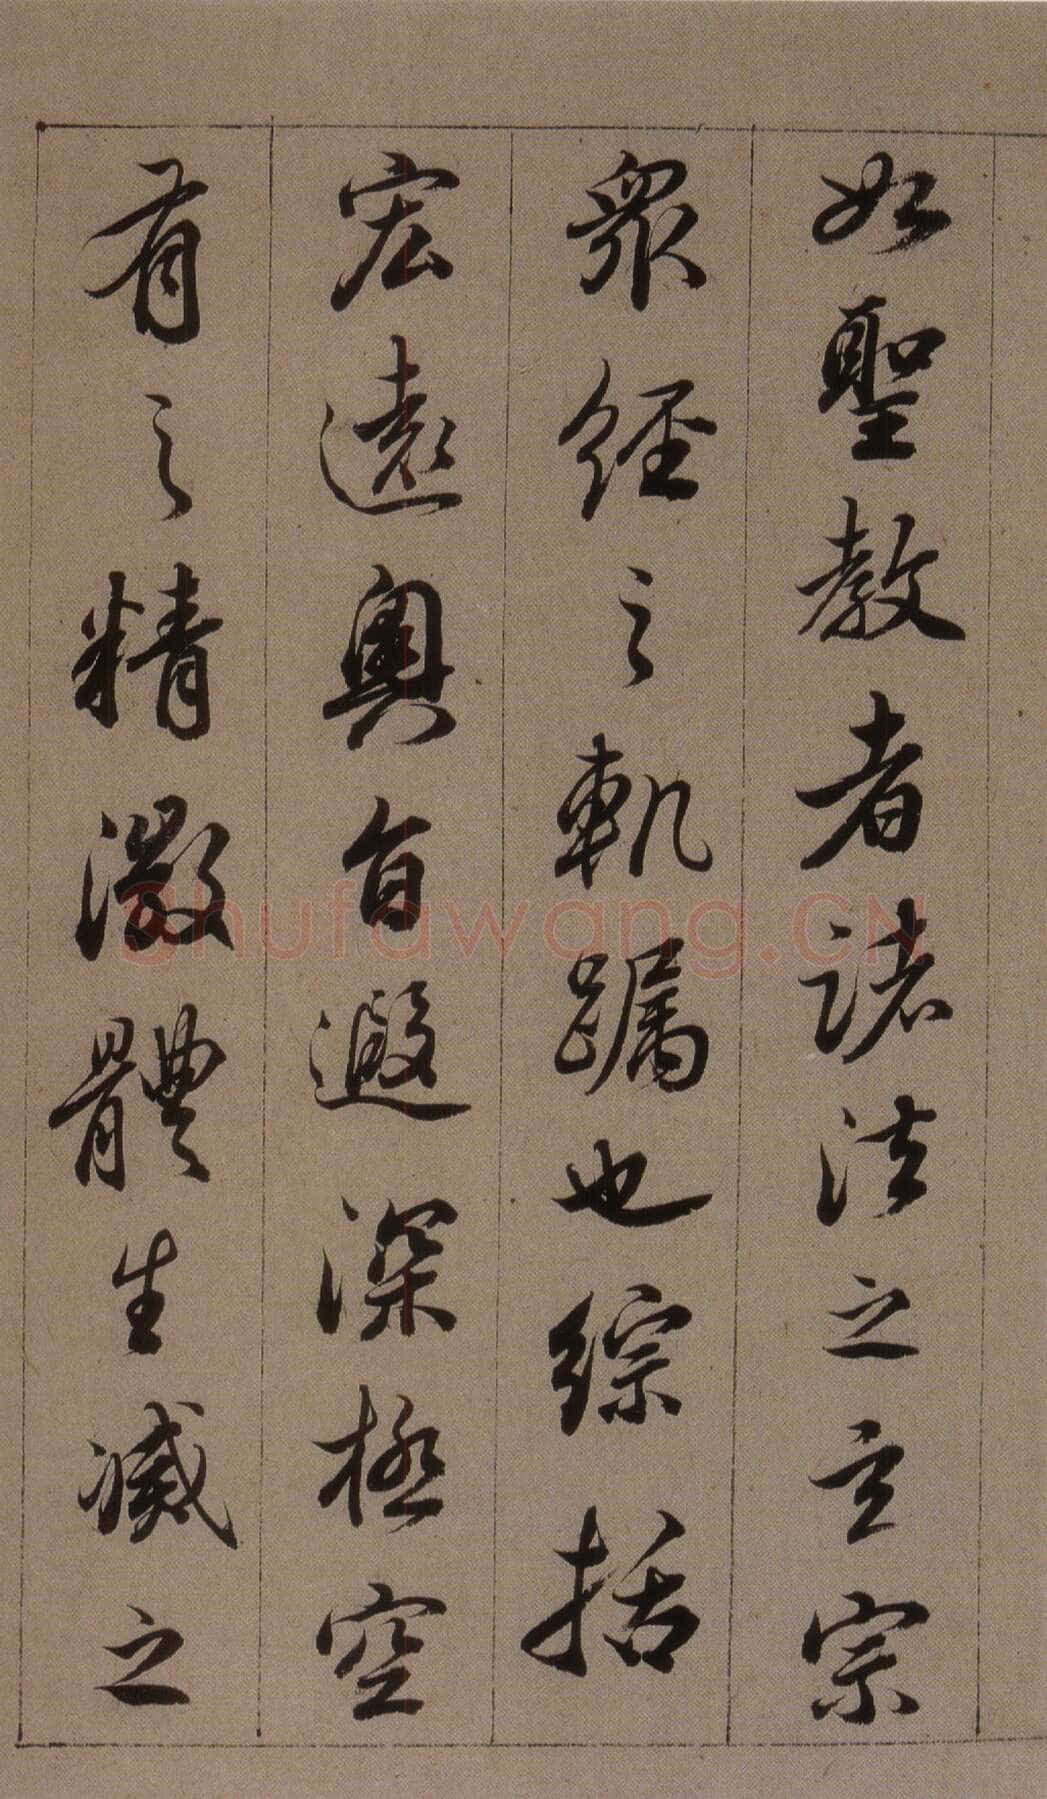 如聖教者諸法之玄宗
衆經之軌躅也綜括
宏遠奧旨遐深極空
有之精微體生滅之
Shufawang.CN